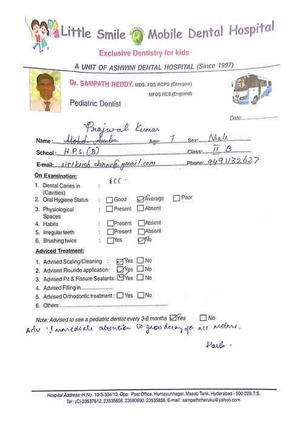 Little Smile Mobile Dental Hospital
Exclusive Dentistry for kids
A UNIT OF ASHWINI DENTAL HOSPITAL (Since 1997)
Dr. SAMPATH REDDY, MDS, FDS RCPS (Glasgow)
MFDS RCS (England)
Pediatric Dentist
Date:
Prajwal Kumar
Name: Age: 7 Sex: Male
School: H.P.S. (B) Class: II B
E-mail: @gmail.com Phone: 9491132637
On Examination:
1. Dental Caries in (Cavities) ECC
2. Oral Hygiene Status : Good Average Poor
3. Physiological Spaces : Present Absent
4. Habits : Present Absent
5. Irregular teeth : Present Absent
6. Brushing twice : Yes No
Adviced Treatment:
1. Advised Scaling/Cleaning : Yes No
2. Advised Flouride application: Yes No
3. Advised Pit & Fissure Sealants: Yes No
4. Advised Filling in
5. Advised Orthodontic treatment : Yes No
6. Others:
Note: Advised to see a pediatric dentist every 3-6 months Yes No
Adv: Immediate attention to gross decay for all molars.
Hospital Address: H.No. 10-3-304/13, Opp. Post Office, Humayunnagar, Masab Tank, Hyderabad - 500 028 T.S.
Tel: (C) 23537612, 23535858, 23530690, 23535858. E-mail: sampathcheruku@yahoo.com